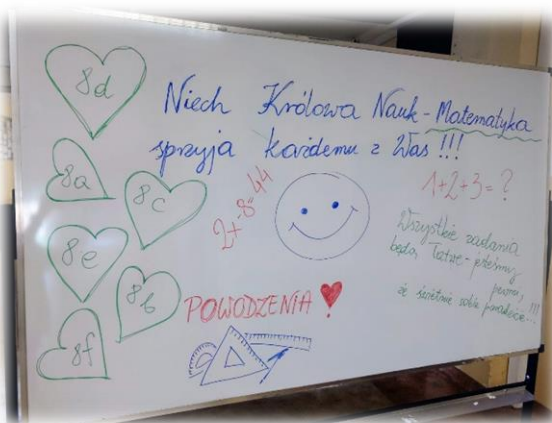 8d
Niech Królowa Nauk - Matematyka
sprzyja każdemu z Was !!!
8a
8c
8e
8b
8f
1+2+3=?
Wszystkie zadania
będą łatwe - jesteśmy
pewni,
że świetnie sobie poradzicie...!!!
POWODZENIA!